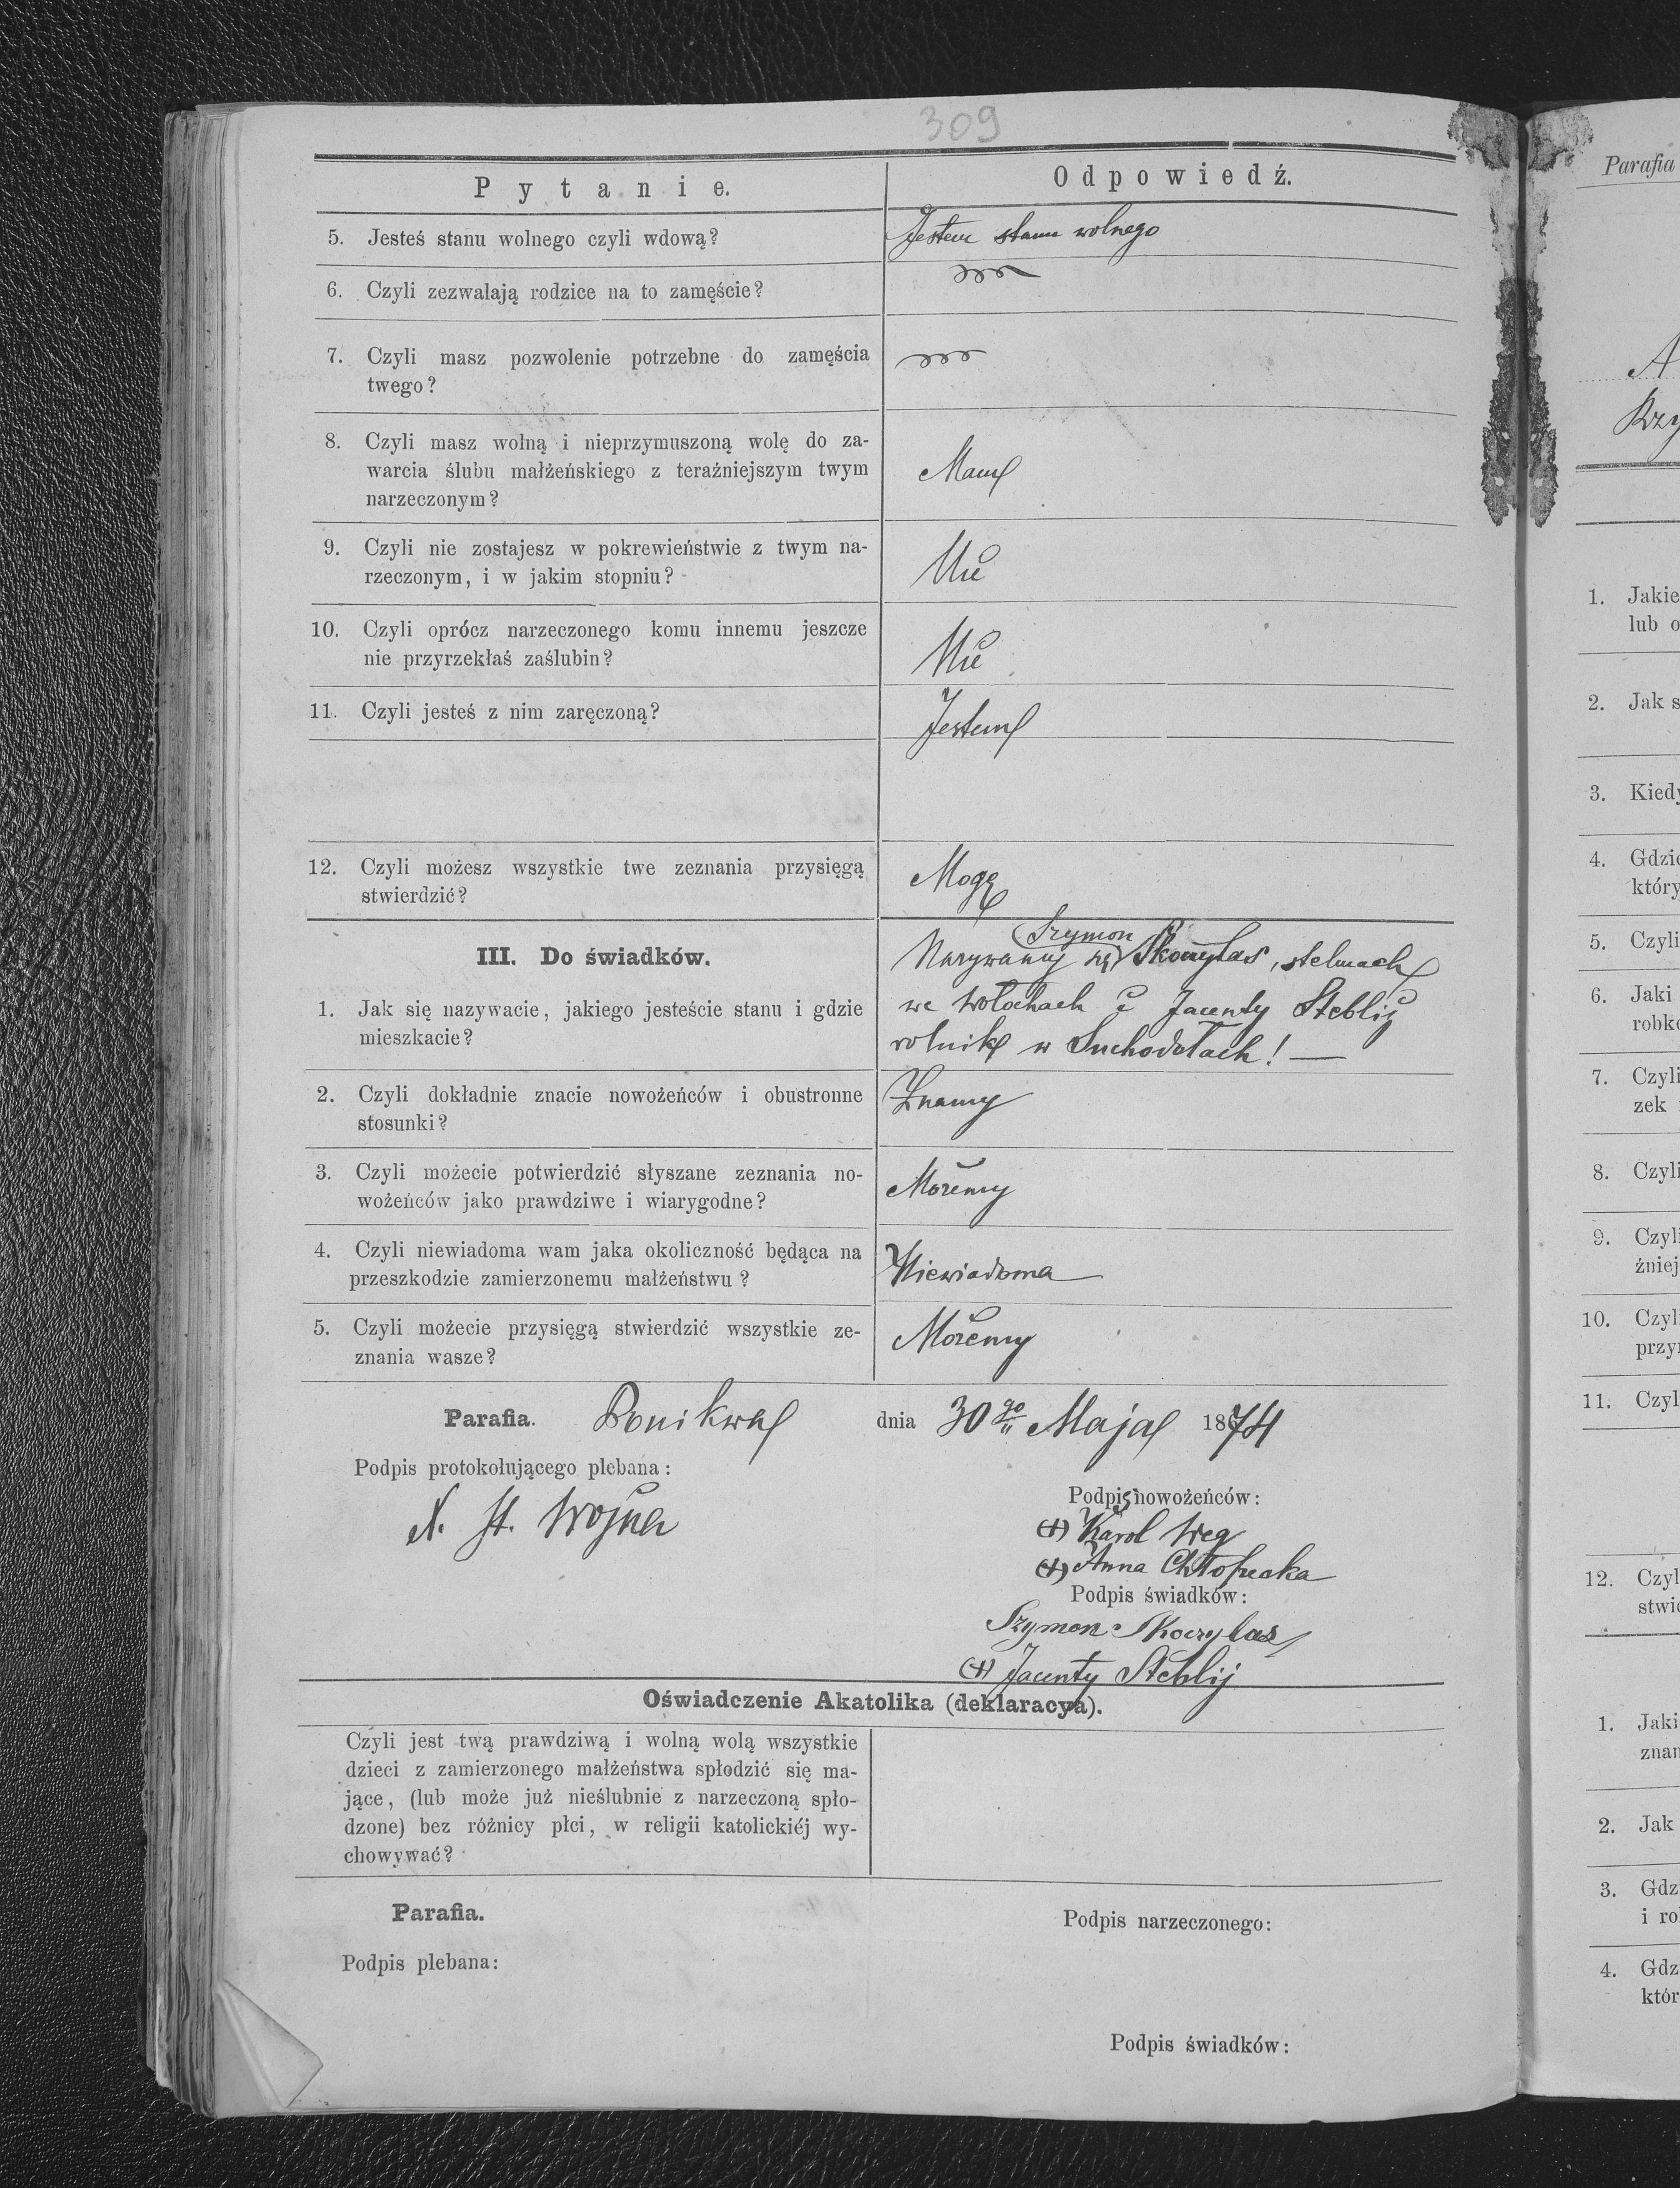 309
Pytanie. Odpowiedź.
5. Jesteś stanu wolnego czyli wdową? Jestem stanu wolnego
6. Czyli zezwalają rodzice na to zamęście?
7. Czyli masz pozwolenie potrzebne do zamęścia
twego?
8. Czyli masz wolną i nieprzymuszoną wolę do za-
warcia ślubu małżeńskiego z teraźniejszym twym
narzeczonym? Mam
9. Czyli nie zostajesz w pokrewieństwie z twym na-
rzeczonym, i w jakim stopniu? Nie
10. Czyli oprócz narzeczonego komu innemu jeszcze
nie przyrzekłaś zaślubin? Nie
11. Czyli jesteś z nim zaręczoną? Jestem
12. Czyli możesz wszystkie twe zeznania przysięgą
stwierdzić? Mogę
III. Do świadków.
1. Jak się nazywacie, jakiego jesteście stanu i gdzie
mieszkacie?
Szymon
Nazywamy się Skoczylas, stelmach
we Wołochach i Jacenty Steblij
rolnik w Suchodołach! —
2. Czyli dokładnie znacie nowożeńców i obustronne
stosunki? Znamy
3. Czyli możecie potwierdzić słyszane zeznania no-
wożeńców jako prawdziwe i wiarygodne? Możemy
4. Czyli niewiadoma wam jaka okoliczność będąca na
przeszkodzie zamierzonemu małżeństwu? Niewiadoma
5. Czyli możecie przysięgą stwierdzić wszystkie ze-
znania wasze? Możemy
Parafia. Ponikwa dnia 30go Maja 1874
Podpis protokołującego plebana:
X. St. Wojna
Podpis nowożeńców:
(+) Karol Weg
(+) Anna Chłopecka
Podpis świadków:
Szymon Skoczylas
(+) Jacenty Steblij
Oświadczenie Akatolika (deklaracya).
Czyli jest twą prawdziwą i wolną wolą wszystkie
dzieci z zamierzonego małżeństwa spłodzić się ma-
jące, (lub może już nieślubnie z narzeczoną spło-
dzone) bez różnicy płci, w religii katolickiéj wy-
chowywać?
Parafia. Podpis narzeczonego:
Podpis plebana:
Podpis świadków:
Parafia
A
Krzy
1. Jakie
lub o
2. Jak s
3. Kiedy
4. Gdzie
który
5. Czyli
6. Jaki
robko
7. Czyli
zek
8. Czyli
9. Czyli
źniej
10. Czyli
przyr
11. Czyl
12. Czyl
stwie
1. Jaki
znan
2. Jak
3. Gdz
i ro
4. Gdz
któr